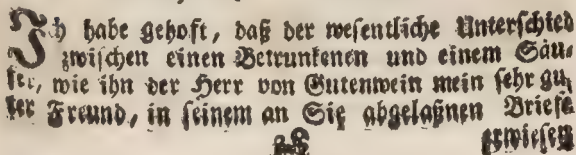 Ich habe gehoft, daß der wesentliche Unterschied
zwischen einen Betrunkenen und einem Säu⸗
fer, wie ihn der Herr von Gutenwein mein sehr gu⸗
ter Freund, in seinem an Sie abgelaßnen Briefe
erwiesen